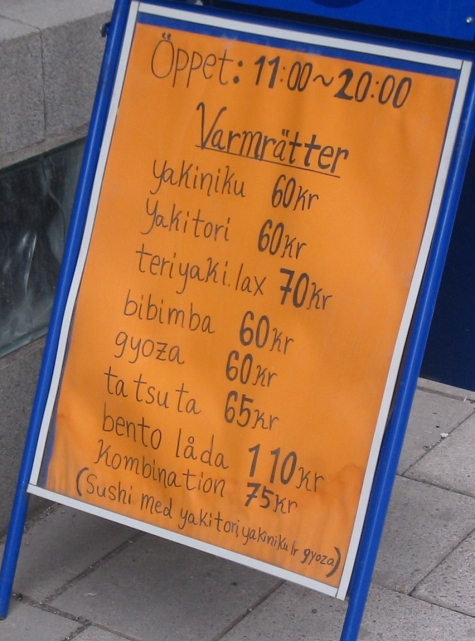 Öppet: 11:00~20:00
Varmrätter
yakiniku 60kr
yakitori 60kr
teriyaki.lax 70kr
bibimba 60kr
gyoza 60kr
tatsuta 65kr
bento låda 110kr
Kombination 75kr
(Sushi med yakitori,yakiniku lr gyoza)